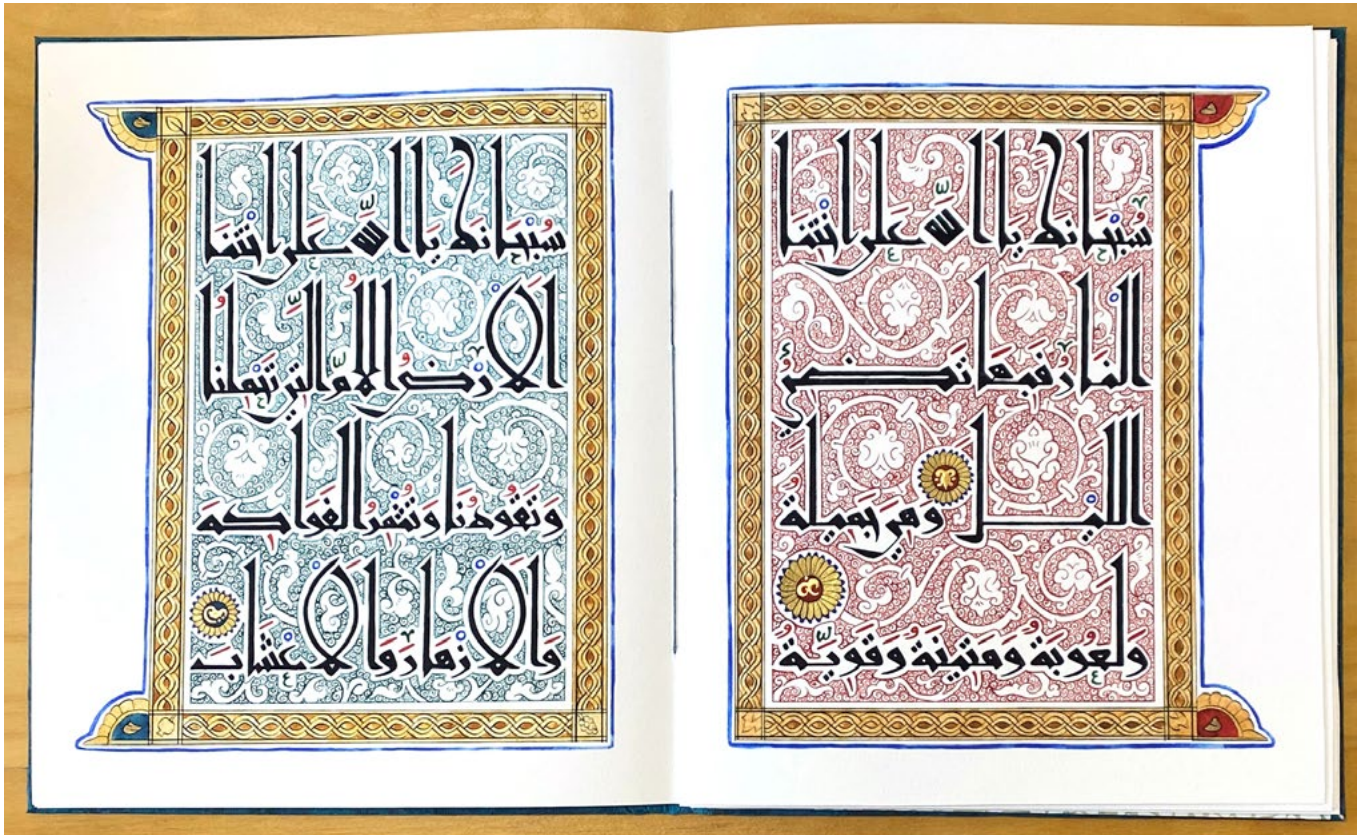 سُبْحَانَكَ يَا اللَّه عَلَى اخْتِنَا
النَار فَبِهَا تَضِيءُ
اللَيْل وَهِيَ جَمِيلَةُ
وَلَعُوبَةُ وَمَتِينَةُ وَقَوِيَّةُ
سُبْحَانَكَ يَا اللَّه عَلَى اخْتِنَا
الَارْض الُام الَّتِي تَحْمِلُنَا
وَتَقُودُنَا وَتُثْمِرُ الفَوَاكِهَ
وَالَازْهَارَ وَالَاعْشَابَ